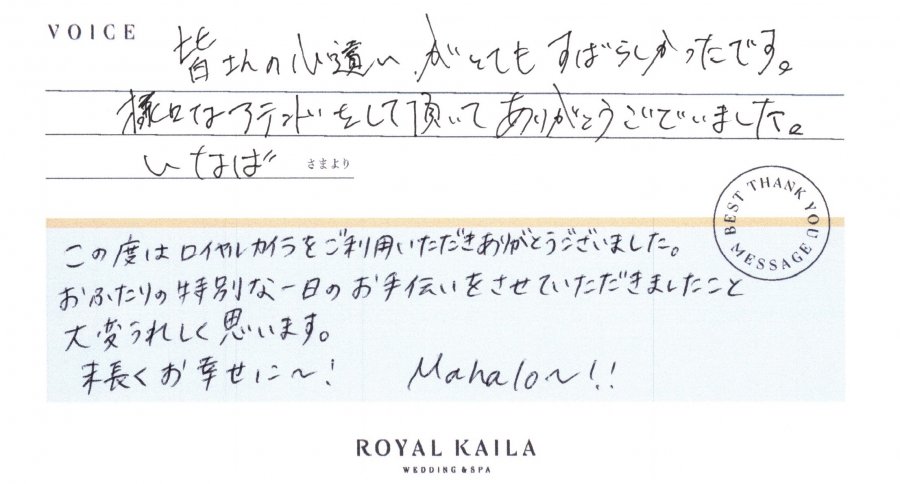 VOICE
皆さんの心遣いがとてもすばらしかったです。
様々なアテンドをして頂いてありがとうございました。
いなば さまより
BEST THANK YOU MESSAGE
この度はロイヤルカイラをご利用いただきありがとうございました。
おふたりの特別な一日のお手伝いをさせていただきましたこと
大変うれしく思います。
末長くお幸せに〜! Mahalo〜!!
ROYAL KAILA
WEDDING & SPA